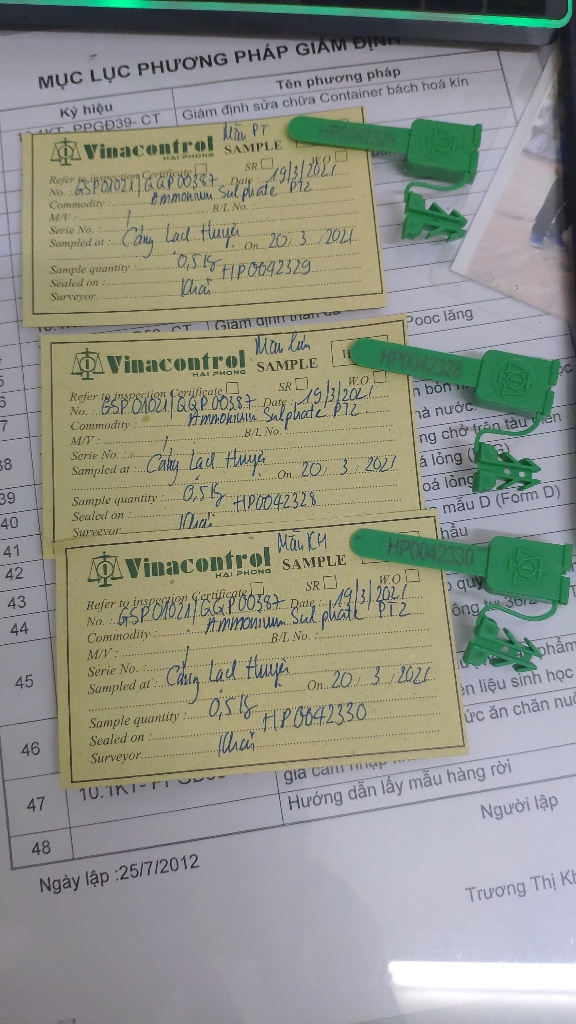 MỤC LỤC PHƯƠNG PHÁP GIÁM ĐỊNH
Ký hiệu
Tên phương pháp
10.1KT- PPGĐ39- CT
Giám định sửa chữa Container bách hoá kín
Mẫu PT
Vinacontrol
HAI PHONG
SAMPLE
HP0042329
SR W.O
Refer to inspection Certificate
No. : GSP01021/GGP00387 Date : 19/3/2021
Commodity : Ammonium Sulphate PT2
M/V : / B/L No. :
Serie No. :
Sampled at : Cảng Lạch Huyện
On 20/3/2021
Sample quantity : 0,5 kg
Sealed on : HP0042329
Surveyor Khải
Giám định
Pooc lăng
Mẫu lưu
Vinacontrol
HAI PHONG
SAMPLE
HP0042328
SR W.O
Refer to inspection Certificate
No. : GSP01021/GGP00387 Date : 19/3/2021
Commodity : Ammonium Sulphate PT2
M/V : / B/L No. :
Serie No. :
Sampled at : Cảng Lạch Huyện
On 20/3/2021
Sample quantity : 0,5 kg
Sealed on : HP0042328
Surveyor Khải
nước
chở trên tàu
mẫu D (Form D)
Mẫu KH
Vinacontrol
HAI PHONG
SAMPLE
HP0042330
SR W.O
Refer to inspection Certificate
No. : GSP01021/GGP00387 Date : 19/3/2021
Commodity : Ammonium Sulphate PT2
M/V : / B/L No. :
Serie No. :
Sampled at : Cảng Lạch Huyện
On 20/3/2021
Sample quantity : 0,5 kg
Sealed on : HP0042330
Surveyor Khải
38
39
40
41
42
43
44
45
46
47
48
phẩm
liệu sinh học
ức ăn chăn nuô
10.1KT-
gia cầm nhập
Hướng dẫn lấy mẫu hàng rời
Ngày lập :25/7/2012
Người lập
Trương Thị Kh